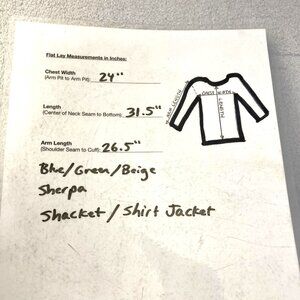 Flat Lay Measurements in Inches:
Chest Width
(Arm Pit to Arm Pit) 24"
Length
(Center of Neck Seam to Bottom) 31.5"
Arm Length
(Shoulder Seam to Cuff) 26.5"
Blue/Green/Beige
Sherpa
Shacket / Shirt Jacket
CHEST WIDTH
LENGTH